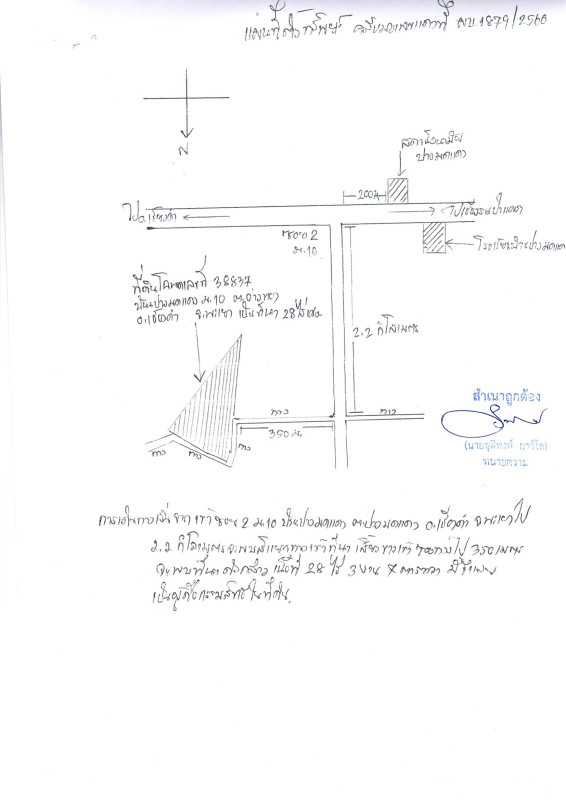 แผนที่ตั้งทรัพย์ คดีหมายเลขแดงที่ ผบ.1879/2560
N
สถานีอนามัย
ปางมดแดง
200ม
ไปอ.เชียงคำ
ซอย 2
ม.10
โรงเรียนบ้านปางมดแดง
ที่ดินโฉนดเลขที่ 38837
บ้านปางมดแดง ม.10
อ.เชียงคำ จ.พะเยา เป็นที่นา 28 ไร่เศษ
2.2 กิโลเมตร
ทาง
ทาง
350 ม
ทาง
ทาง
ทาง
สำเนาถูกต้อง
ทนายความ
การเดินทางเริ่มจากเข้าซอย 2 ม.10 บ้านปางมดแดง อ.เชียงคำ จ.พะเยา ไป
2.2 กิโลเมตร จะพบสี่แยกทางเข้าที่นา เลี้ยวขวาเข้าไป 350 เมตร
จะพบที่นาดังกล่าว เนื้อที่ 28 ไร่ 3 งาน ตารางวา มีจำเลย
เป็นผู้ถือกรรมสิทธิ์ในที่ดิน